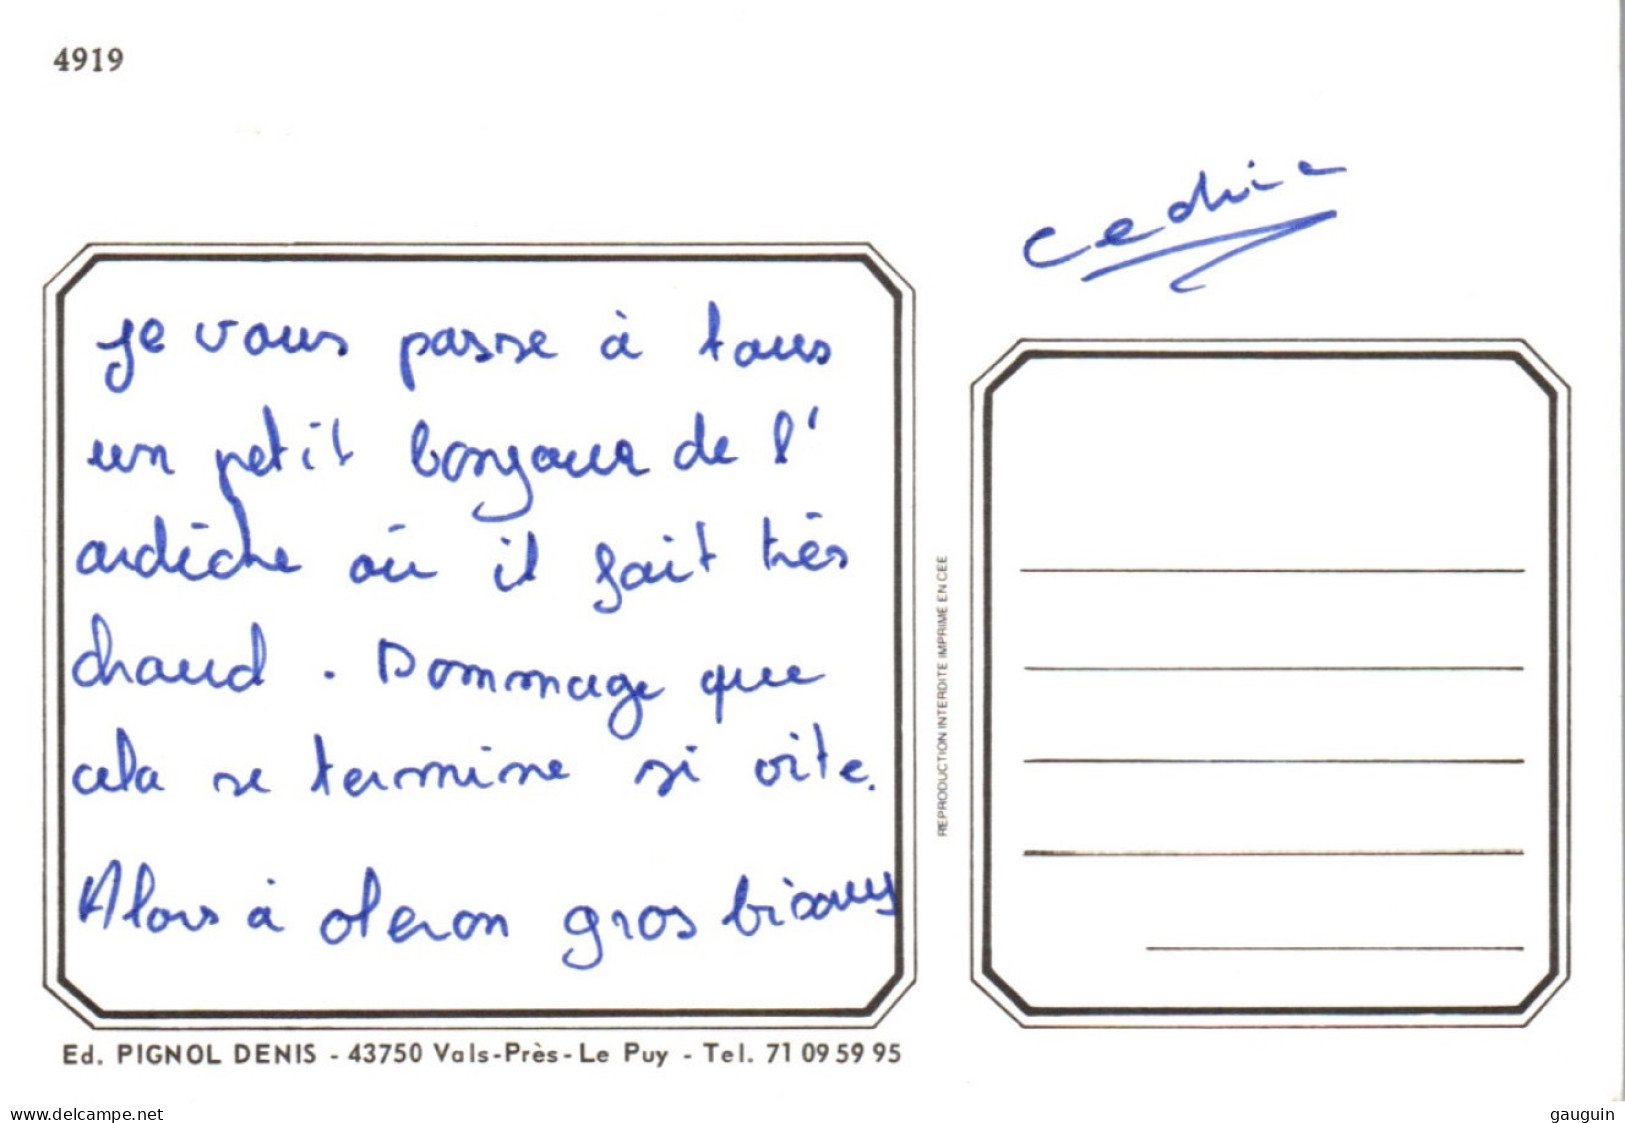 4919
cedric
je vous passe à tous
un petit bonjour de l'
ardèche où il fait très
chaud. Dommage que
cela se termine si vite.
Alors à oleron gros bisous
REPRODUCTION INTERDITE IMPRIME EN CEE
Ed. PIGNOL DENIS - 43750 Vals-Près-Le Puy - Tel. 71 09 59 95
www.delcampe.net
gauguin